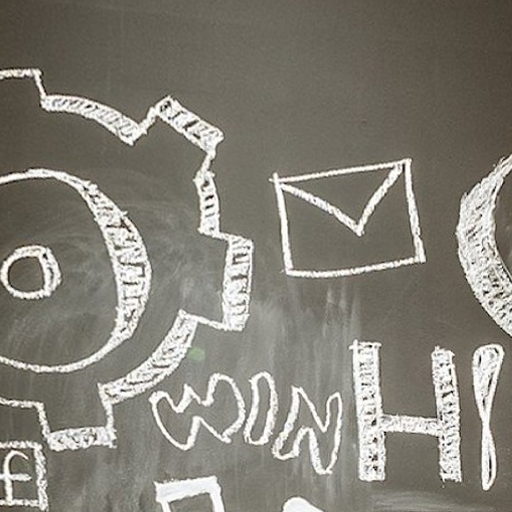 WIN
H!
f